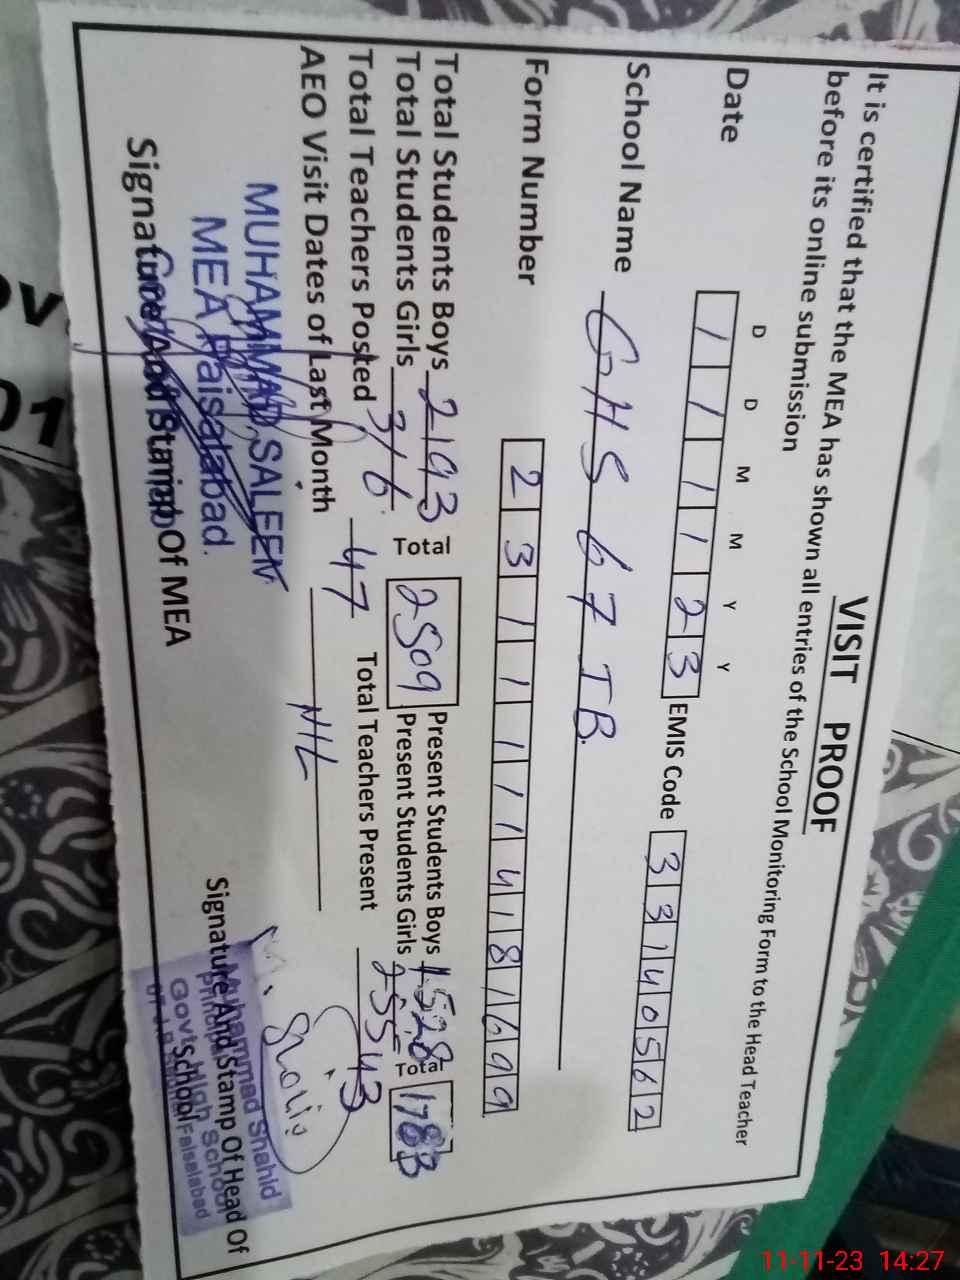 VISIT PROOF
It is certified that the MEA has shown all entries of the School Monitoring Form to the Head Teacher
before its online submission
D D M M Y Y
Date 1 1 1 1 2 3 EMIS Code 3 3 1 4 0 5 6 2
School Name GHS 67 JB.
Form Number 2 3 1 1 1 1 1 4 1 8 1 6 9 9
Total Students Boys 2193 Total 2509 Present Students Boys 1528 Total 1783
Total Students Girls 316 Present Students Girls 255
Total Teachers Posted 47 Total Teachers Present 43
AEO Visit Dates of Last Month NIL
MUHAMMAD SALEEM
MEA Faisalabad.
Signature And Stamp Of MEA
Signature And Stamp Of Head Of
School
Muhammad Shahid
Principal
Govt. High School
67 J.B Faisalabad
ov
01
11-11-23 14:27